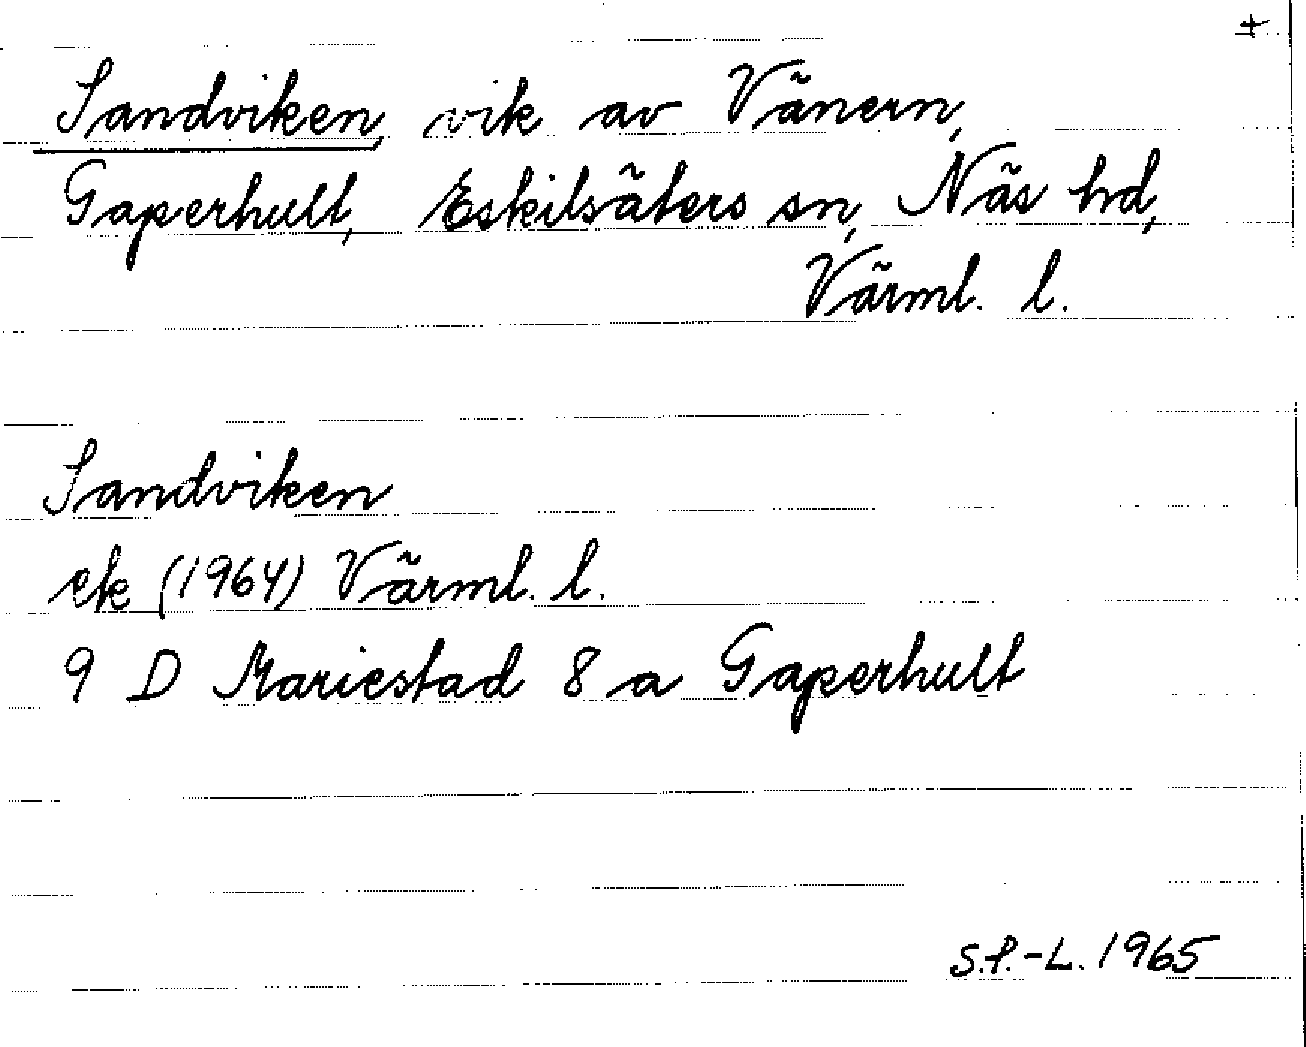 Sandviken, vik av Vänern,
Gaperhult, Eskilsäters sn, Näs hd,
Värml. l.
Sandviken
ek (1964) Värml. l.
9 D Mariestad 8 a Gaperhult
S.P.-L. 1965